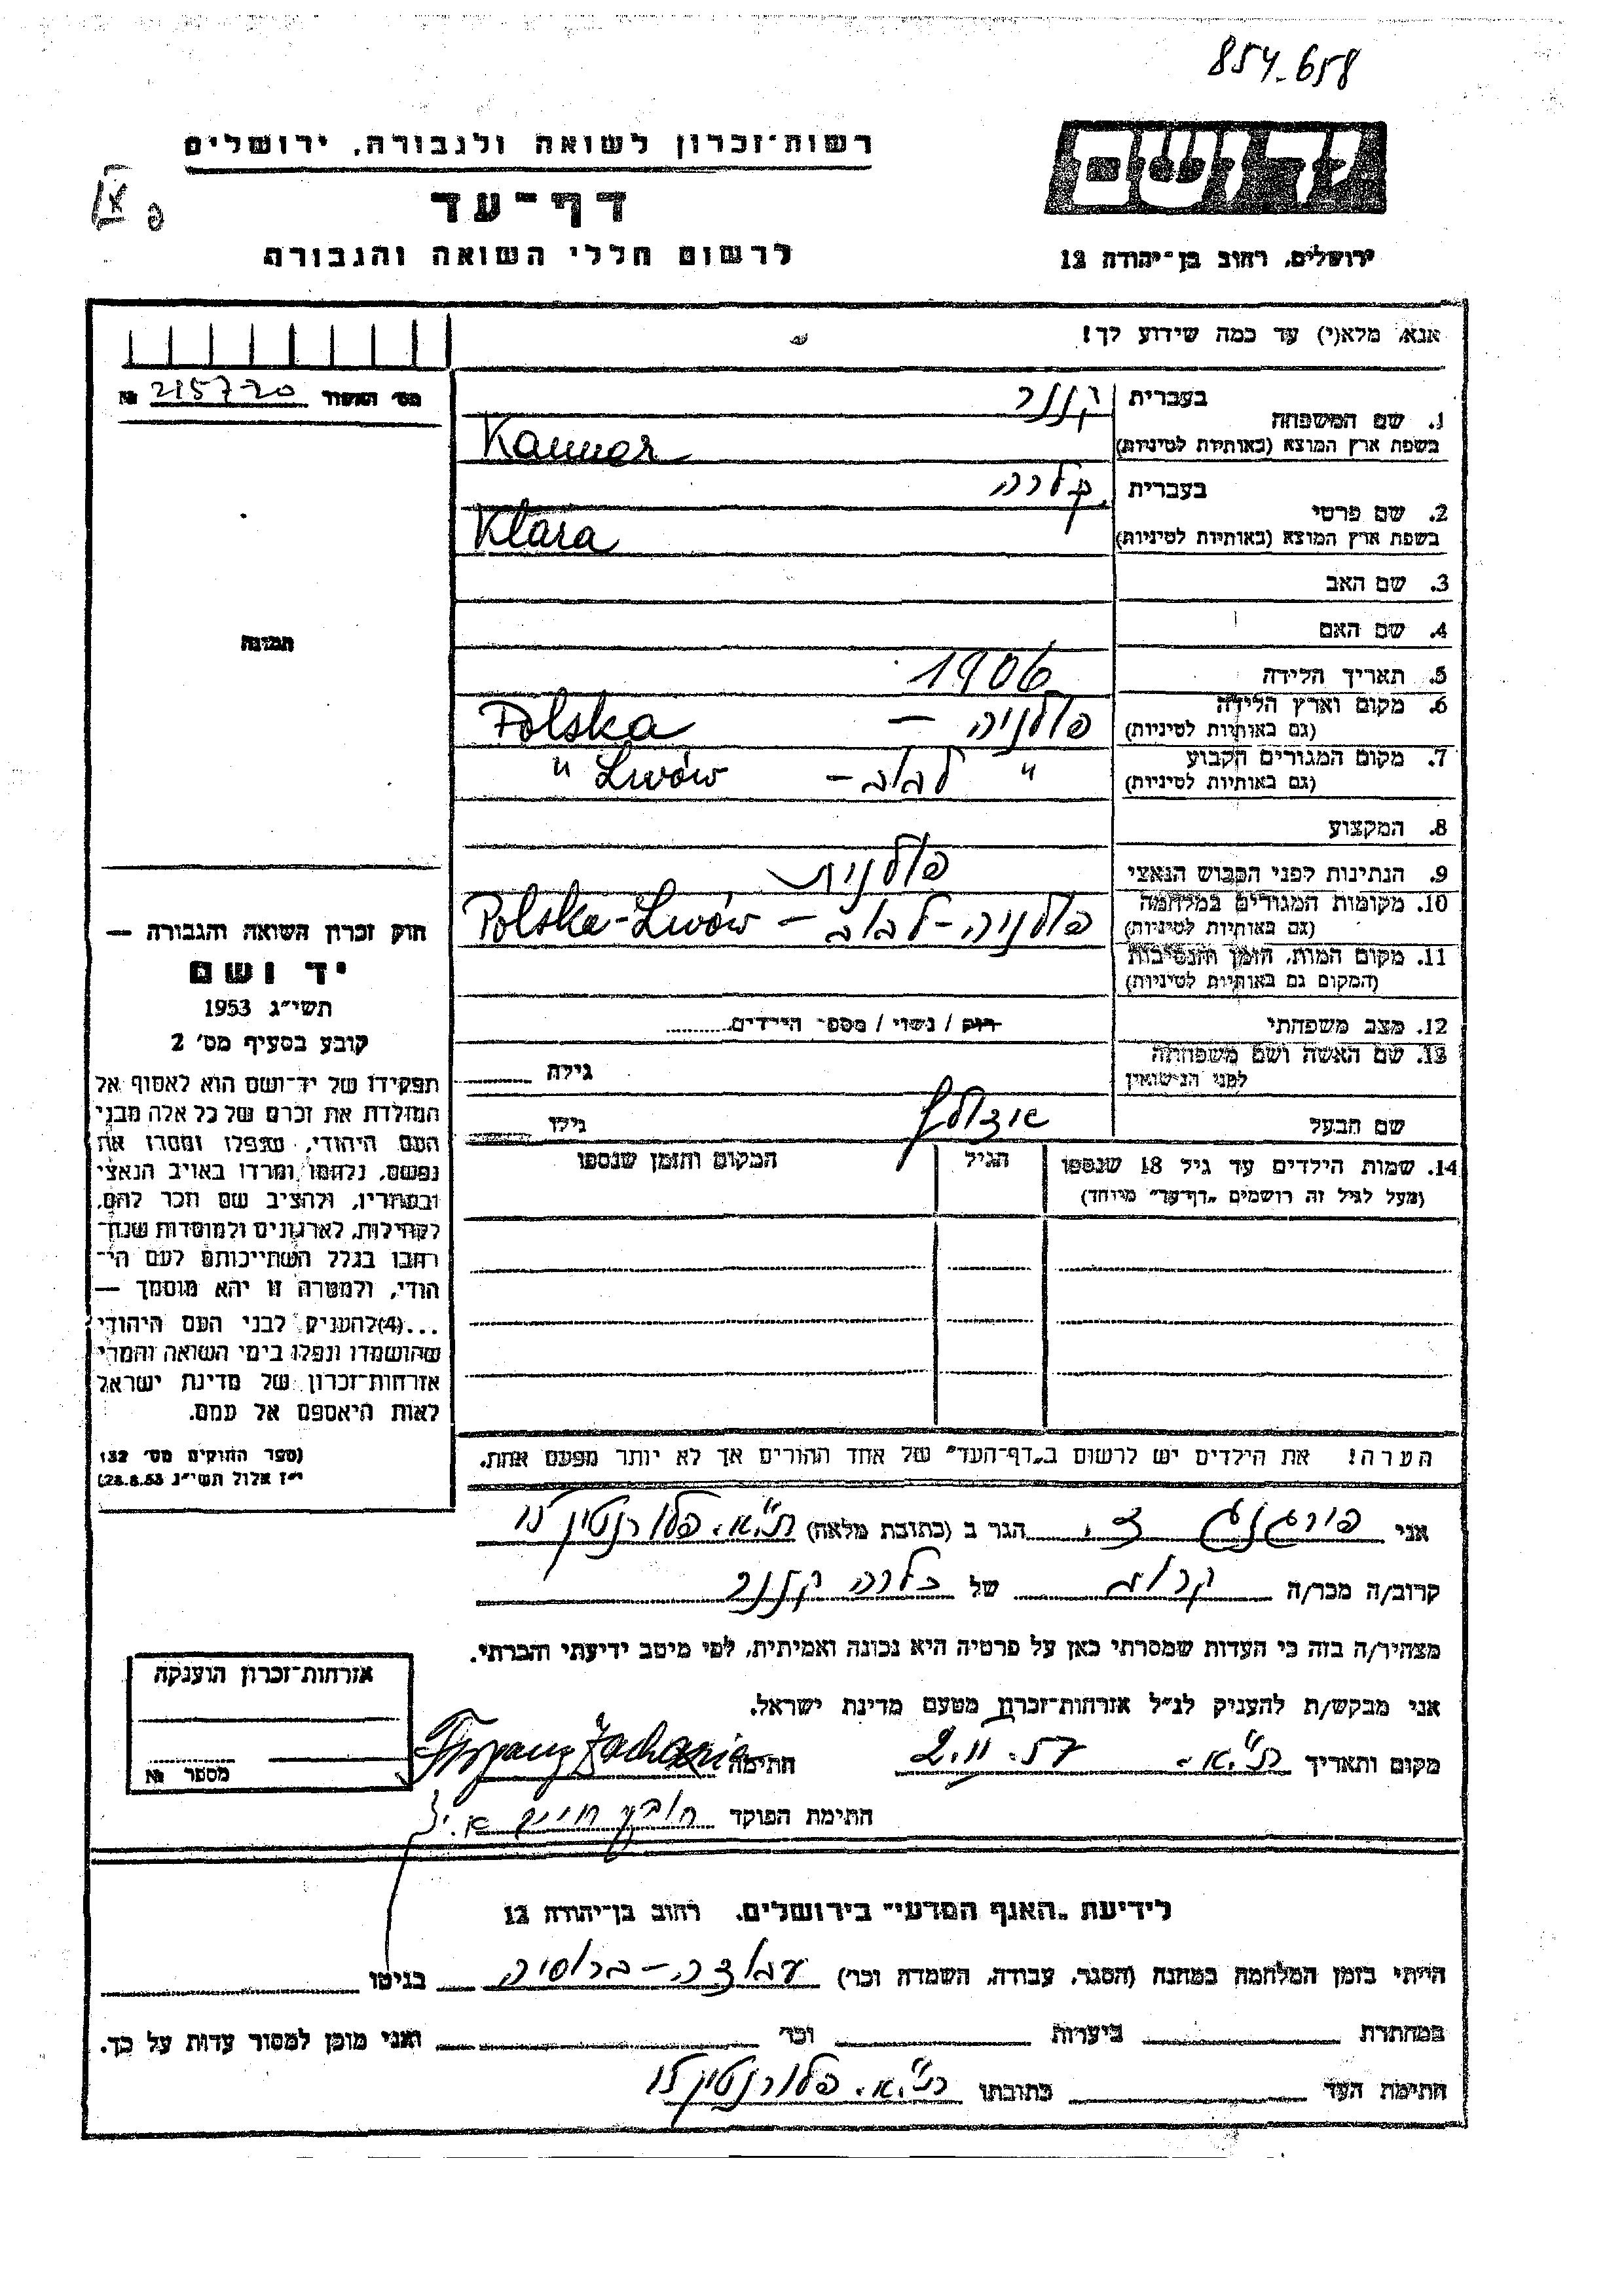 854.658
רשות-זכרון לשואה ולגבורה, ירושלים
דף-עד
לרשום חללי השואה והגבורה
ידושם
ירושלים, רחוב בן-יהודה 12
אנא, מלא(י) עד כמה שידוע לך!
מס' האשור 215720 №
1. שם המשפחה
בעברית קנר
בשפת ארץ המוצא (באותיות לטיניות) Kanner
2. שם פרטי
בעברית קלרה
בשפת ארץ המוצא (באותיות לטיניות) Klara
3. שם האב
4. שם האם
תמונה
5. תאריך הלידה 1906
6. מקום וארץ הלידה פולניה – Polska
(גם באותיות לטיניות)
7. מקום המגורים הקבוע " לבוב – Lwów "
(גם באותיות לטיניות)
8. המקצוע
9. הנתינות לפני הכבוש הנאצי פולנית
10. מקומות המגורים במלחמה פולניה-לבוב – Polska-Lwów
(גם באותיות לטיניות)
11. מקום המות, הזמן והנסיבות
(המקום גם באותיות לטיניות)
12. מצב משפחתי רוק / נשוי / מספר הילדים
13. שם האשה ושם משפחתה
לפני הנישואין
גילה
שם הבעל אדולף גילו
14. שמות הילדים עד גיל 18 שנספו
(מעל לגיל זה רושמים „דף-עד" מיוחד)
הגיל
המקום והזמן שנספו
חוק זכרון השואה והגבורה —
יד ושם
תשי"ג 1953
קובע בסעיף מס' 2
תפקידו של יד-ושם הוא לאסוף אל
המולדת את זכרם של כל אלה מבני
העם היהודי, שנפלו ומסרו את
נפשם, נלחמו ומרדו באויב הנאצי
ובעוזריו, ולהציב שם וזכר להם,
לקהילות, לארגונים ולמוסדות שנח-
רבו בגלל השתייכותם לעם הי-
הודי, ולמטרה זו יהא מוסמך —
...(4) להעניק לבני העם היהודי
שהושמדו ונפלו בימי השואה והמרי
אזרחות-זכרון של מדינת ישראל
לאות היאספם אל עמם.
(ספר החוקים מס' 132
י"ז אלול תשי"ג 28.8.53)
הערה! את הילדים יש לרשום ב„דף-העד" של אחד ההורים אך לא יותר מפעם אחת.
אני הגר ב (כתובת מלאה) ת"א. פלורנטין
קרוב/ה מכר/ה קרוב של קלרה קנר
מצהיר/ה בזה כי העדות שמסרתי כאן על פרטיה היא נכונה ואמיתית, לפי מיטב ידיעתי והכרתי.
אני מבקש/ת להעניק לנ"ל אזרחות-זכרון מטעם מדינת ישראל.
מקום ותאריך ת"א. 2.11.57 חתימה
חתימת הפוקד
אזרחות-זכרון הוענקה
מספר №
לידיעת „האגף המדעי" בירושלים, רחוב בן-יהודה 12
הייתי בזמן המלחמה במחנה (הסגר, עבודה, השמדה וכו') עבודה – ברוסיה בגיטו
במחתרת ביערות וכו' ואני מוכן למסור עדות על כך.
חתימת העד כתובתו ת"א. פלורנטין